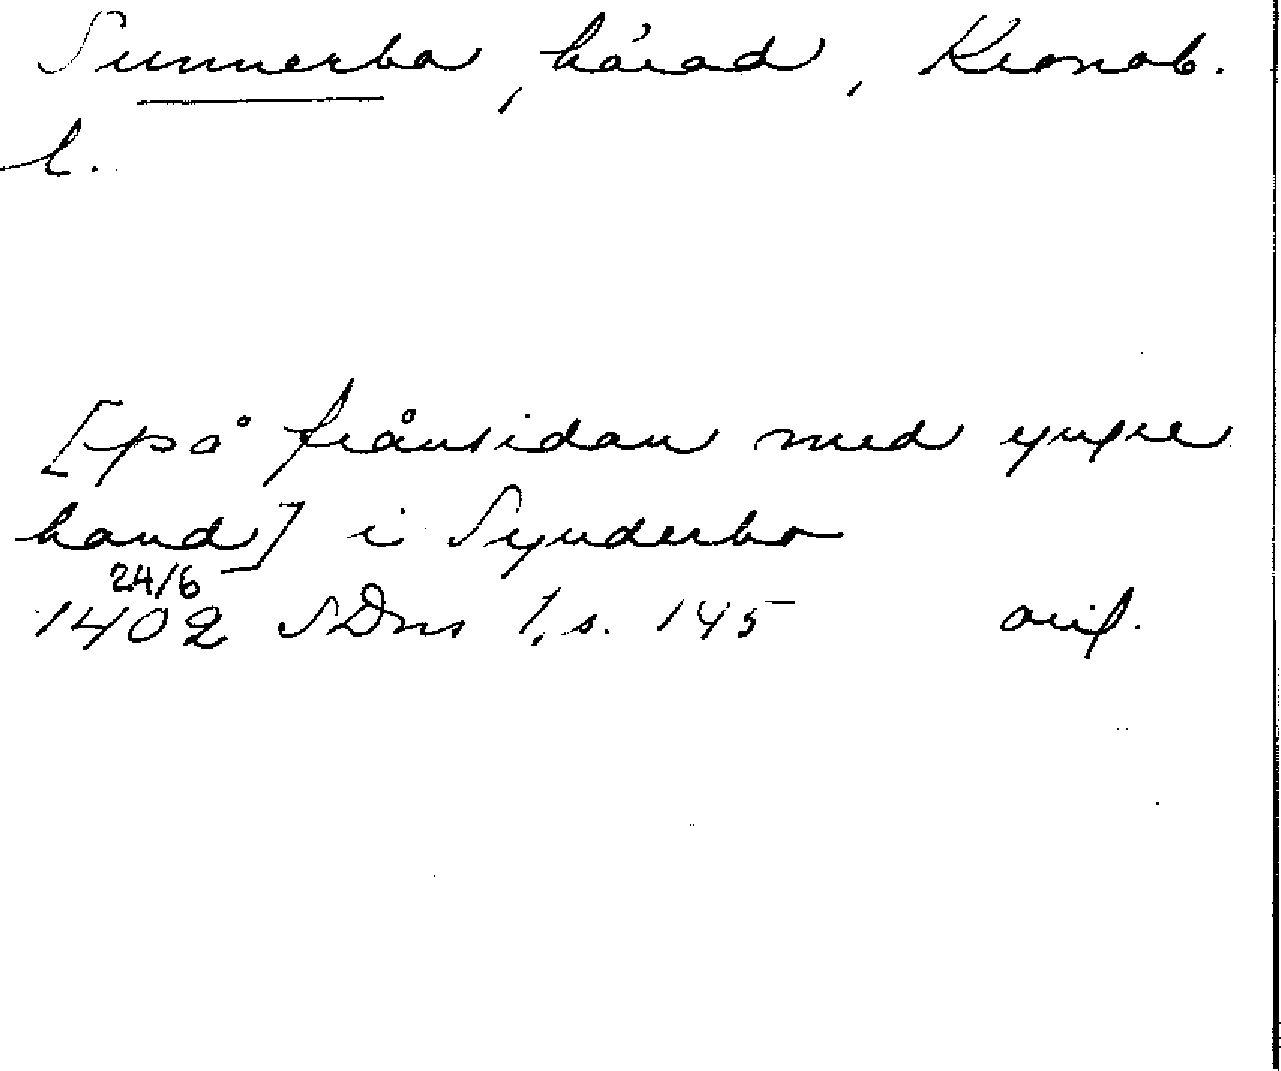 Sunnerbo, härad, Kronob.
l.
[på frånsidan med yngre
hand] i Synderbo
24/6
1402 SDns 1, s. 145 orig.